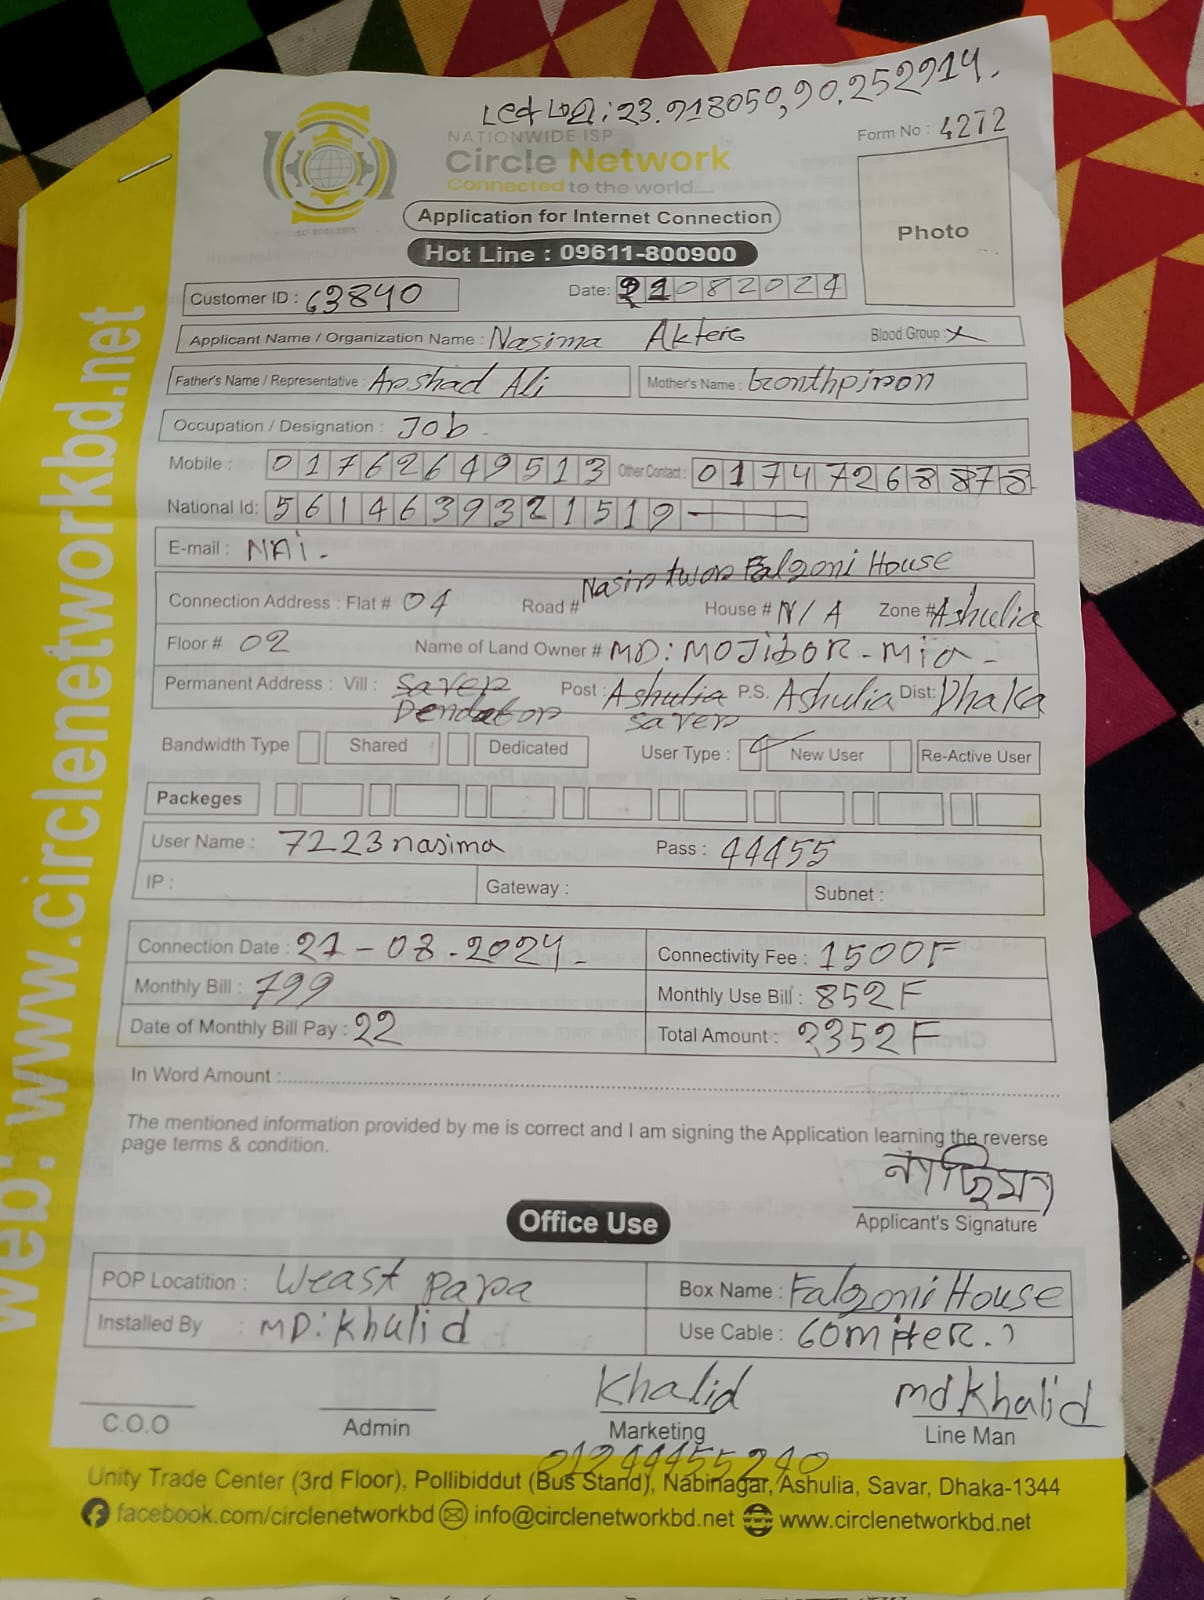 23.918050, 90.252914.
NATIONWIDE ISP
Form No : 4272
Circle Network
Connected to the world....
Application for Internet Connection
Photo
Hot Line : 09611-800900
Customer ID : 63840
Date: 21082024
Applicant Name / Organization Name : Nasima Akter
Blood Group : X
Father's Name / Representative : Arshad Ali
Mother's Name :
Occupation / Designation : Job
Mobile : 01762649513 Other Contact : 01747268878
National Id: 5614639321519
E-mail : NAi.
Falgoni House
Connection Address : Flat # 04 Road # House # N/A Zone # Ashulia
Floor # 02 Name of Land Owner # MD: MOJiboR - mia -
Permanent Address : Vill : Saver Post : Ashulia P.S. Ashulia Dist: Dhaka
Dendabor Saver
Bandwidth Type Shared Dedicated User Type : New User Re-Active User
Packeges
User Name : 7223nasima Pass : 44455
IP : Gateway : Subnet :
Connection Date : 21-08-2024. Connectivity Fee : 1500F
Monthly Bill : 799 Monthly Use Bill : 852F
Date of Monthly Bill Pay : 22 Total Amount : 2352F
In Word Amount :
The mentioned information provided by me is correct and I am signing the Application learning the reverse
page terms & condition.
নাছিমা
Applicant's Signature
Office Use
POP Locatition : Weast Para Box Name : Falgoni House
Installed By : MD: Khalid Use Cable : 60miter.
Khalid md.Khalid
C.O.O Admin Marketing Line Man
Unity Trade Center (3rd Floor), Pollibiddut (Bus Stand), Nabinagar, Ashulia, Savar, Dhaka-1344
facebook.com/circlenetworkbd info@circlenetworkbd.net www.circlenetworkbd.net
web: www.circlenetworkbd.net